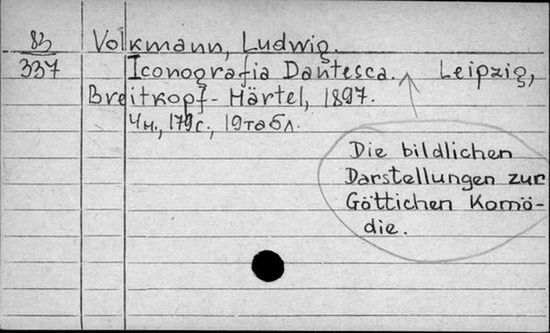 83
337
Volkmann, Ludwig.
Iconografia Dantesca. Leipzig,
Breitkopf-Härtel, 1897.
4н., 179 с., 19 табл.
Die bildlichen
Darstellungen zur
Göttichen Komö-
die.